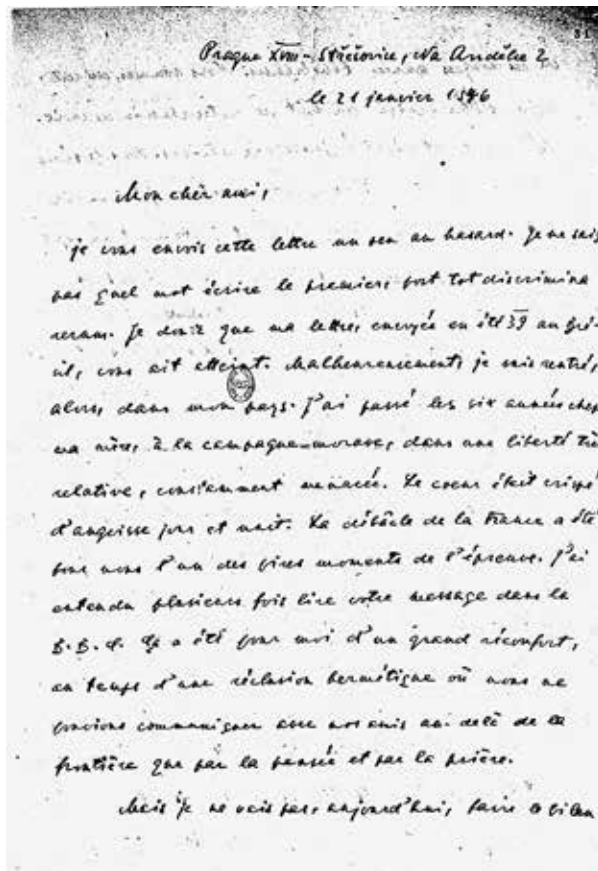 31
Prague XVIII - Střešovice, Na Andělce 2
le 21 janvier 1946
Mon cher ami,
je vous envois cette lettre un peu au hasard. Je ne sais
pas quel mot écrire le premier, post tot discrimina
rerum. Je doute que ma lettre, envoyée en été 39 au Bré-
sil, vous ait atteint. Malheureusement, je suis rentré,
alors, dans mon pays. J'ai passé les six années chez
ma mère, à la campagne morave, dans une liberté très
relative, constamment menacée. Le coeur était crispé
d'angoisse jour et nuit. La débâcle de la France a été
pour nous l'un des pires moments de l'épreuve. J'ai
entendu plusieurs fois lire votre message dans la
B.B.C. Ça a été pour moi d'un grand réconfort,
au temps d'une réclusion hermétique où nous ne
pouvions communiquer avec nos amis au-delà de la
frontière que par la pensée et par la prière.
Mais je ne vais pas, aujourd'hui, faire le bilan